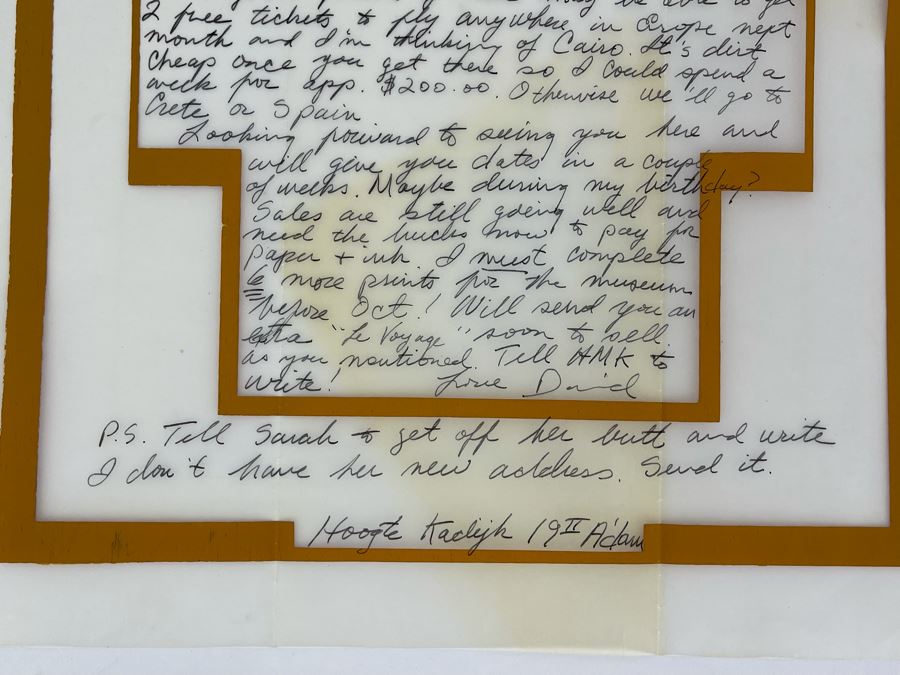 2 free tickets to fly anywhere in Erope next
month and I'm thinking of Cairo. It's dirt
cheap once you get there so I could spend a
week for app. $200.00. Otherwise we'll go to
Crete or Spain
Looking forward to seeing you here and
will give you dates in a couple
of weeks. Maybe during my birthday?
Sales are still going well and
need the bucks now to pay for
paper + ink. I must complete
6 more prints for the museum
before Oct! Will send you an
"Le Voyage" soon to sell
as you mentioned. Tell HMK to
write! Love David
P.S. Tell Sarah to get off her butt and write
I don't have her new address. Send it.
Hoogte Kadijk 19II A'dam